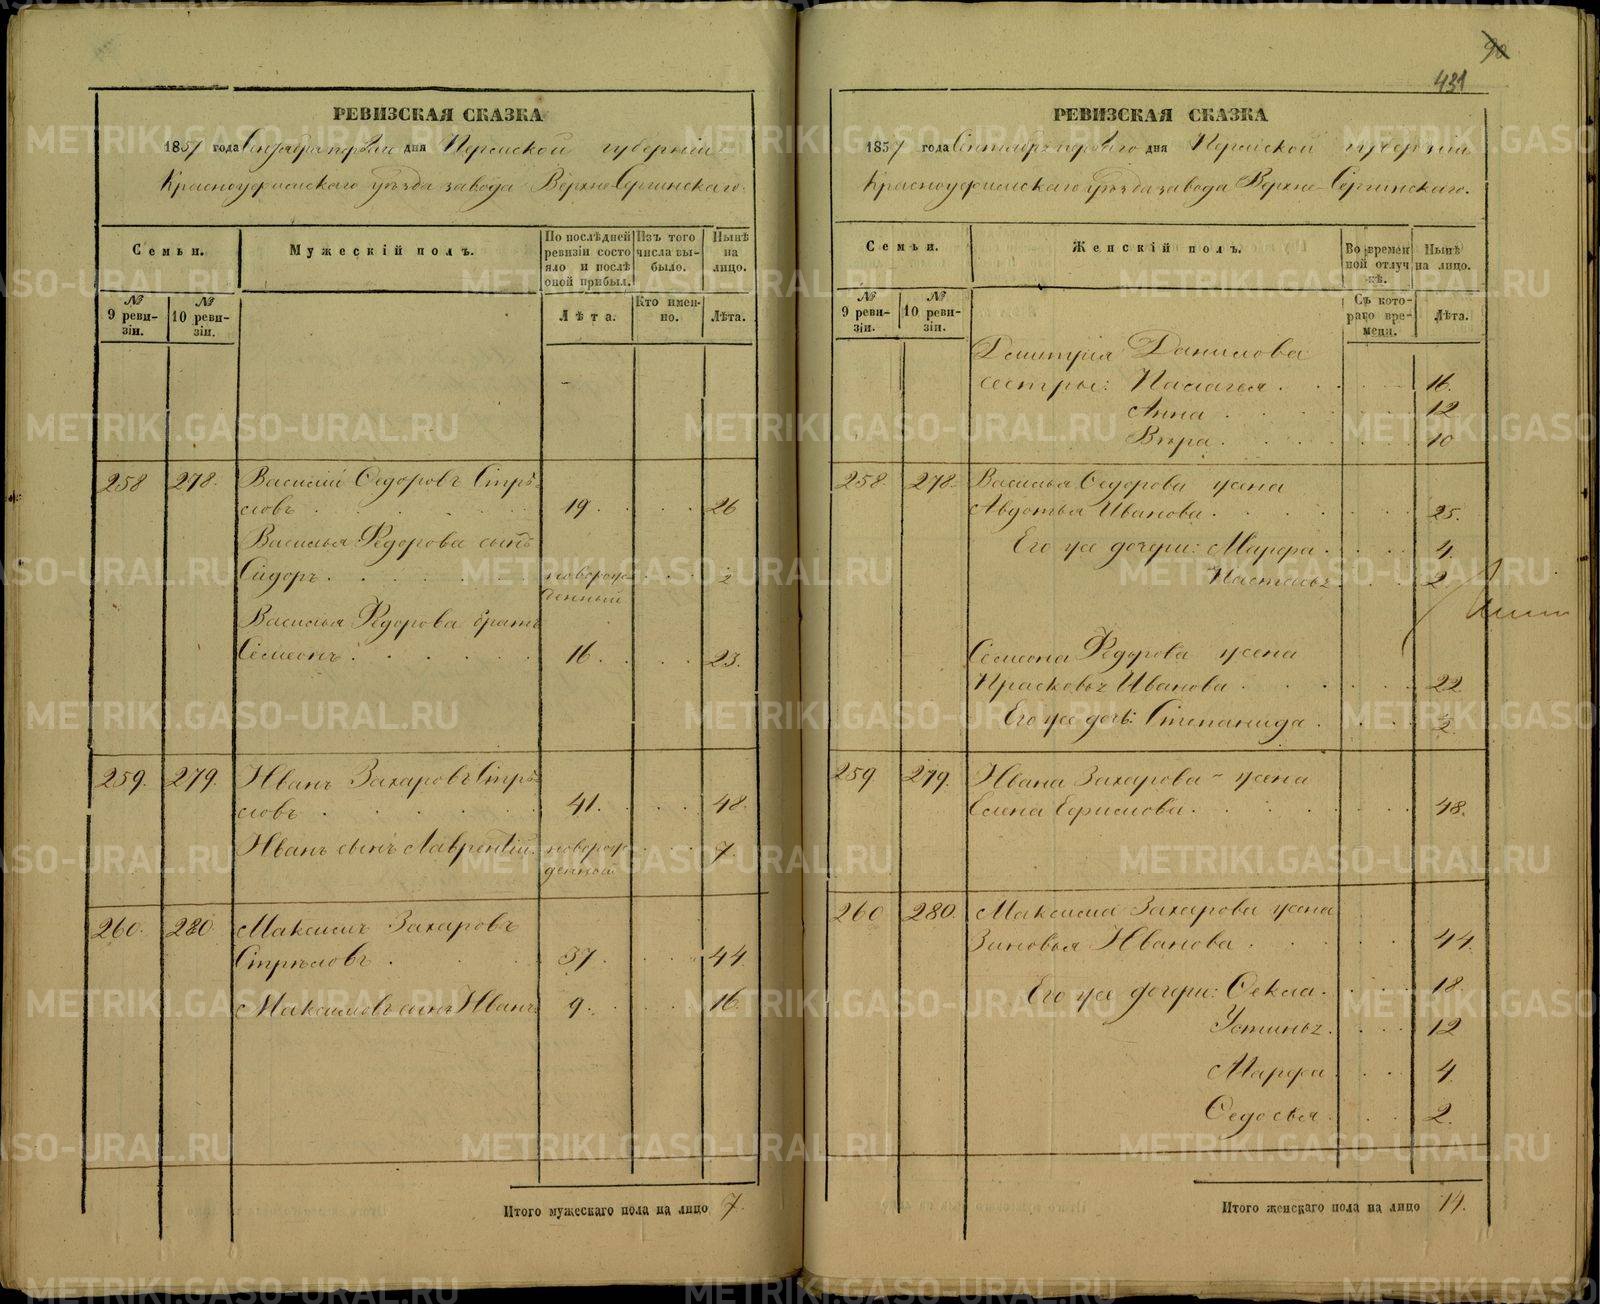 РЕВИЗСКАЯ СКАЗКА
1857 года Сентября перваго дня Пермской губернiи
Красноуфимскаго уѣзда завода Верхне-Сергинскаго.
Семьи.
Мужескiй полъ.
По послѣдней ревизiи состояло и послѣ оной прибыл.
Изъ того числа выбыло.
Нынѣ на лицо.
№ 9 ревизiи.
№ 10 ревизiи.
Лѣта.
Кто именно.
Лѣта.
258 278. Василiй Ѳедоровъ Стрѣ-
ловъ 19. 26
Василья Ѳедорова сынъ
Сидоръ новорож- 2
денный
Василья Ѳедорова братъ
Семеонъ 16. 23.
259. 279. Иванъ Захаровъ Стрѣ-
ловъ 41. 48.
Иванъ сынъ Лаврентiй новорож- 7.
денной
260. 280 Максимъ Захаровъ
Стрѣловъ 37. 44
Максимовъ сынъ Иванъ 9. 16.
Итого мужескаго пола на лицо 7.
90
431
РЕВИЗСКАЯ СКАЗКА
1857 года Сентября перваго дня Пермской губернiи
Красноуфимскаго уѣзда завода Верхне-Сергинскаго.
Семьи.
Женскiй полъ.
Во временной отлучкѣ.
Нынѣ на лицо.
№ 9 ревизiи.
№ 10 ревизiи.
Съ котораго времени.
Лѣта.
Дмитрiя Данилова
сестры: Палагья 16.
Анна 12
Вѣра 10
258. 278. Василья Ѳедорова жена
Авдотья Иванова 25.
Его же дочери: Марфа 4.
Настасья 2
Семеона Ѳедорова жена
Прасковья Иванова 22
Его же дочь: Степанида 2.
259 279. Ивана Захарова жена
Елена Ефимова 48.
260 280. Максима Захарова жена
Зиновья Иванова 44.
Его же дочери: Ѳекла 18.
Устинья 12
Марфа 4
Ѳедосья 2.
Итого женскаго пола на лицо 14.
METRIKI.GASO-URAL.RU